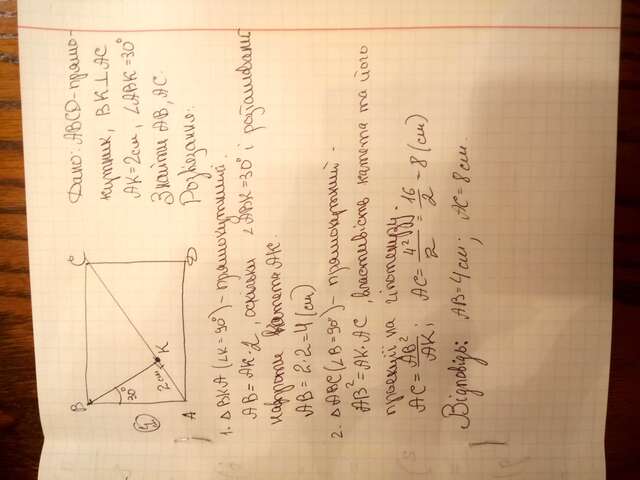 B
C
A
D
K
30°
2 см
4
Дано: ABCD - прямо-
кутник, BK⊥AC
AK=2см, ∠ABK=30°
Знайти AB, AC.
Розв'язання:
1. △BKA (∠K=90°) - прямокутний.
AB=AK·2, оскільки ∠ABK=30° і розташований
навпроти катета AK.
AB=2·2=4(см)
2. △ABC(∠B=90°) - прямокутний -
AB²=AK·AC, властивість катета та його
проекції на гіпотенузу.
AC=AB²/AK; AC=4²/2=16/2-8(см)
Відповідь: AB=4см; AC=8см.